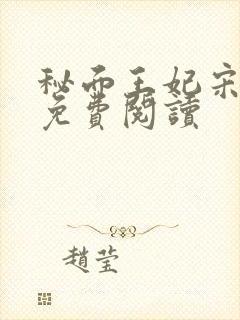 秘而王妃宋
免費閱讀
趙莹